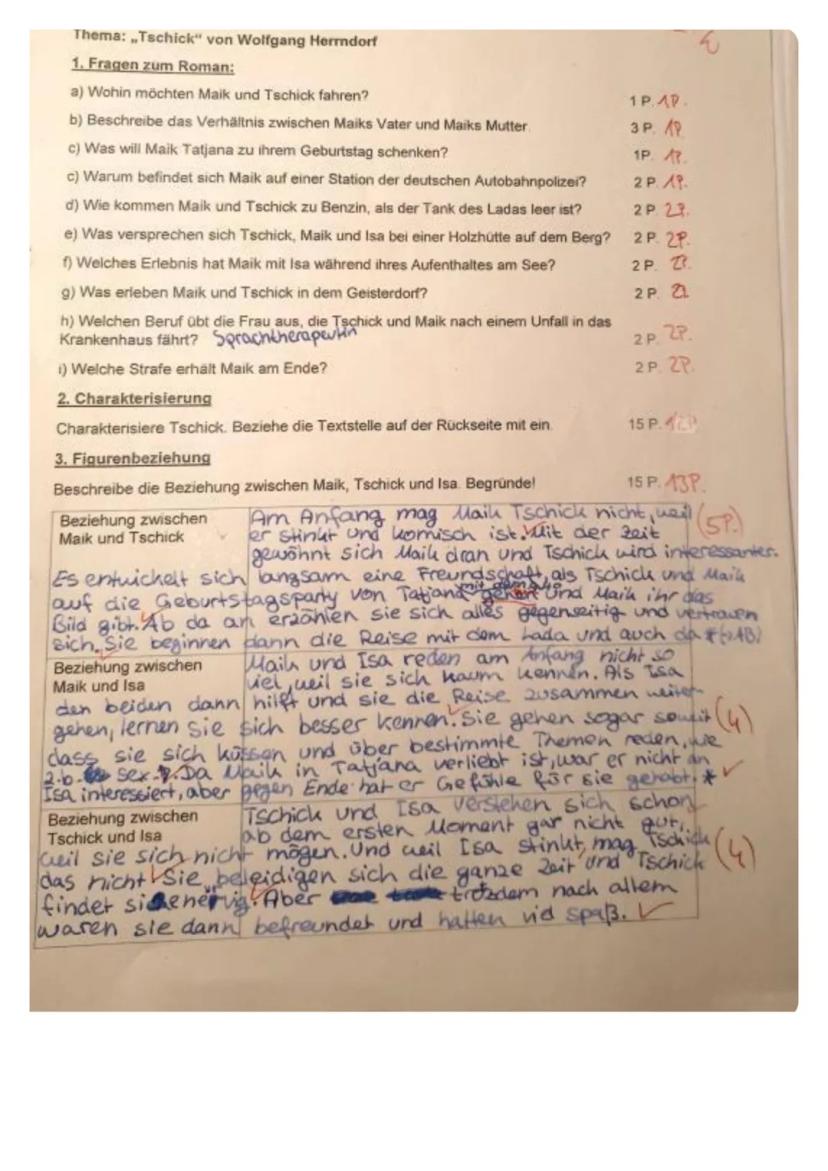 Thema: „Tschick“ von Wolfgang Herrndorf
1. Fragen zum Roman:
a) Wohin möchten Maik und Tschick fahren? 1 P. 1P.
b) Beschreibe das Verhältnis zwischen Maiks Vater und Maiks Mutter. 3 P. 1P
c) Was will Maik Tatjana zu ihrem Geburtstag schenken? 1P. 1P.
c) Warum befindet sich Maik auf einer Station der deutschen Autobahnpolizei? 2 P. 1P.
d) Wie kommen Maik und Tschick zu Benzin, als der Tank des Ladas leer ist? 2 P. 2P.
e) Was versprechen sich Tschick, Maik und Isa bei einer Holzhütte auf dem Berg? 2 P. 2P.
f) Welches Erlebnis hat Maik mit Isa während ihres Aufenthaltes am See? 2 P. 2P.
g) Was erleben Maik und Tschick in dem Geisterdorf? 2 P.
h) Welchen Beruf übt die Frau aus, die Tschick und Maik nach einem Unfall in das
Krankenhaus fährt? Sprachtherapeutin 2 P. 2P.
i) Welche Strafe erhält Maik am Ende? 2 P. 2P.
2. Charakterisierung
Charakterisiere Tschick. Beziehe die Textstelle auf der Rückseite mit ein. 15 P.
3. Figurenbeziehung
Beschreibe die Beziehung zwischen Maik, Tschick und Isa. Begründe! 15 P. 13P.
Beziehung zwischen
Maik und Tschick
Am Anfang mag Maik Tschick nicht, weil (5P.)
er stinkt und komisch ist. Mit der Zeit
gewöhnt sich Maik dran und Tschick wird interessanter.
Es entwickelt sich langsam eine Freundschaft, als Tschick und Maik
auf die Geburtstagsparty von Tatjana gehen und Maik ihr das
Bild gibt. Ab da an erzählen sie sich alles gegenseitig und vertrauen
sich. Sie beginnen dann die Reise mit dem Lada und auch da * (→AB)
Beziehung zwischen
Maik und Isa
Maik und Isa reden am Anfang nicht so
viel, weil sie sich kaum kennen. Als Isa
den beiden dann hilft und sie die Reise zusammen weiter-
gehen, lernen sie sich besser kennen. Sie gehen sogar soweit (4)
dass sie sich küssen und über bestimmte Themen reden, wie
z.b. sex. Da Maik in Tatjana verliebt ist, war er nicht an
Isa interessiert, aber gegen Ende hat er Gefühle für sie gehabt. *
Beziehung zwischen
Tschick und Isa
Tschick und Isa verstehen sich schon
ab dem ersten Moment gar nicht gut,
weil sie sich nicht mögen. Und weil Isa stinkt, mag Tschick (4)
das nicht. Sie beleidigen sich die ganze Zeit und Tschick
findet sie nervig. Aber trotzdem nach allem
waren sie dann befreundet und hatten viel spaß.